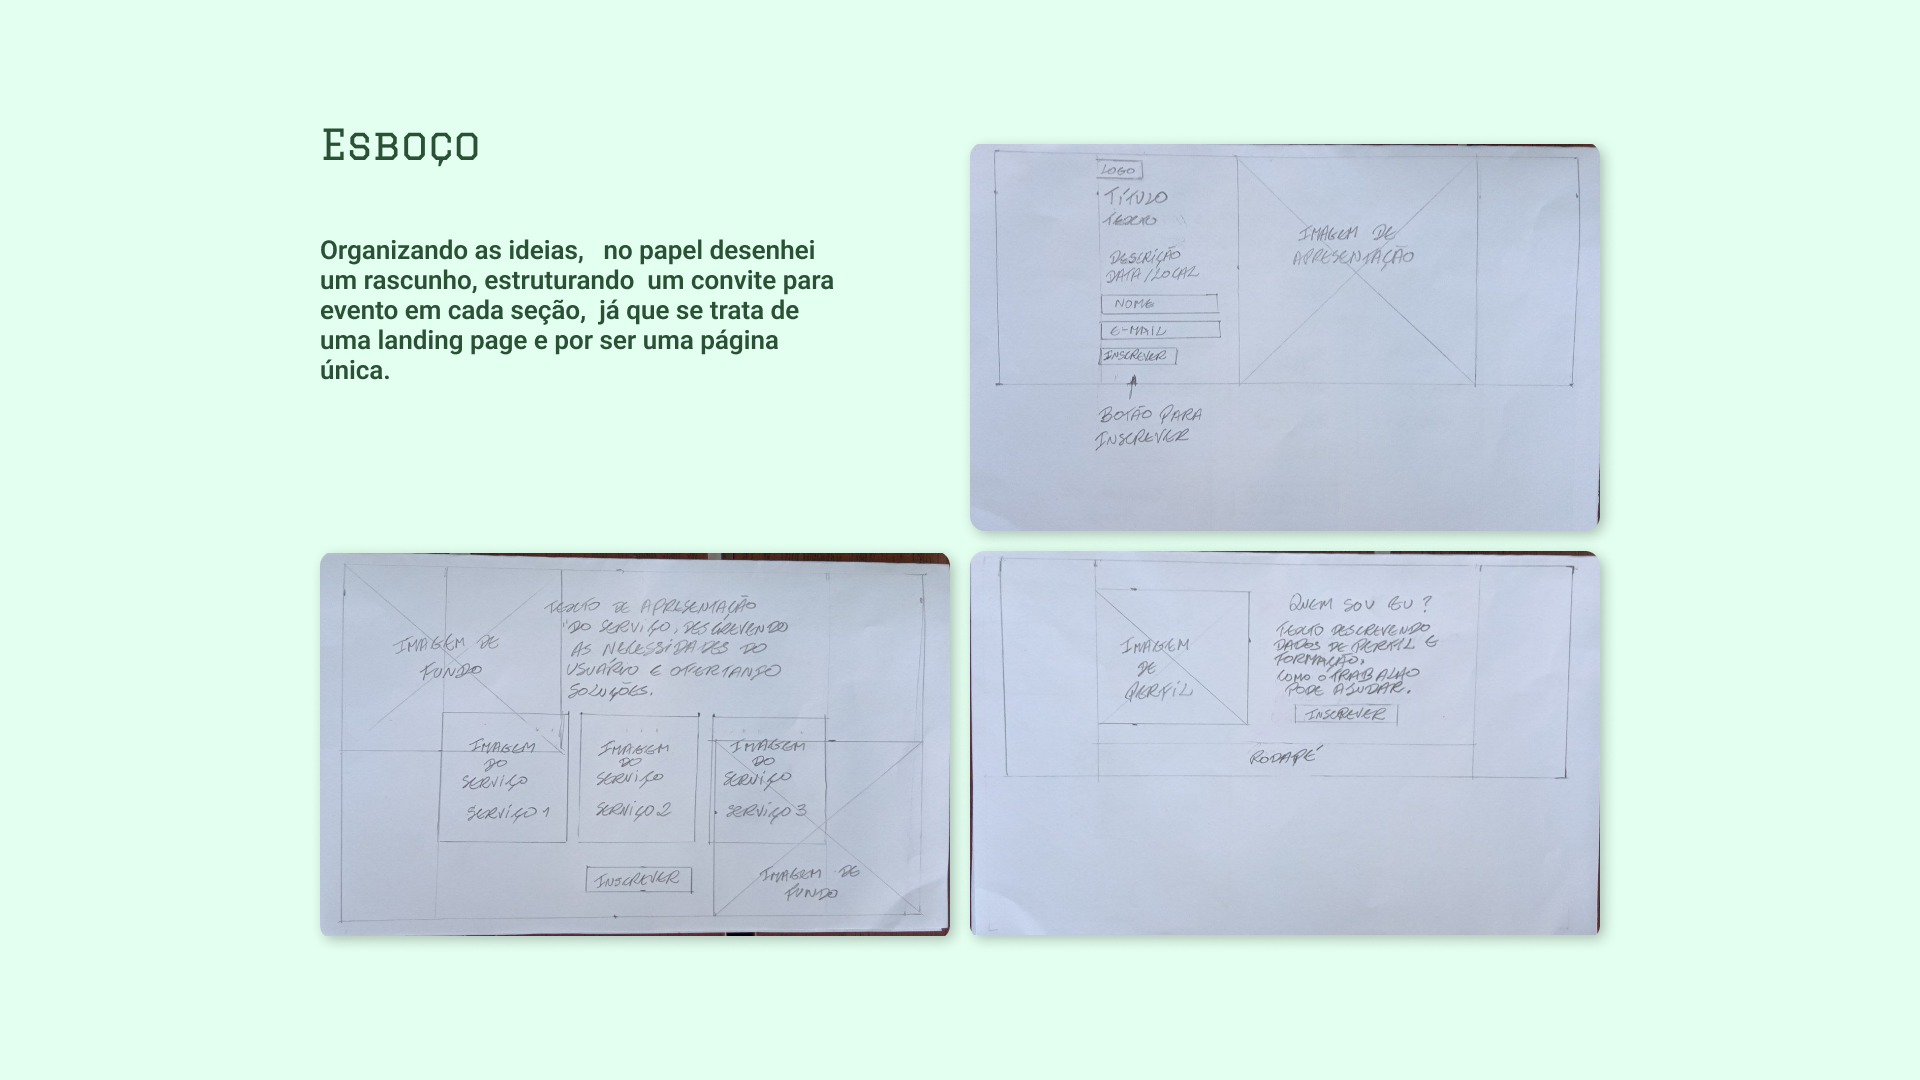 Esboço
Organizando as ideias, no papel desenhei
um rascunho, estruturando um convite para
evento em cada seção, já que se trata de
uma landing page e por ser uma página
única.
LOGO
TÍTULO
TEXTO
DESCRIÇÃO
DATA/LOCAL
NOME
E-MAIL
INSCREVER
BOTÃO PARA
INSCREVER
IMAGEM DE
APRESENTAÇÃO
IMAGEM DE
FUNDO
TEXTO DE APRESENTAÇÃO
DO SERVIÇO, DESCREVENDO
AS NECESSIDADES DO
USUÁRIO E OFERTANDO
SOLUÇÕES.
IMAGEM
DO
SERVIÇO
SERVIÇO 1
IMAGEM
DO
SERVIÇO
SERVIÇO 2
IMAGEM
DO
SERVIÇO
SERVIÇO 3
INSCREVER
IMAGEM DE
FUNDO
IMAGEM
DE
PERFIL
QUEM SOU EU ?
TEXTO DESCREVENDO
DADOS DE PERFIL E
FORMAÇÃO,
COMO O TRABALHO
PODE AJUDAR.
INSCREVER
RODAPÉ